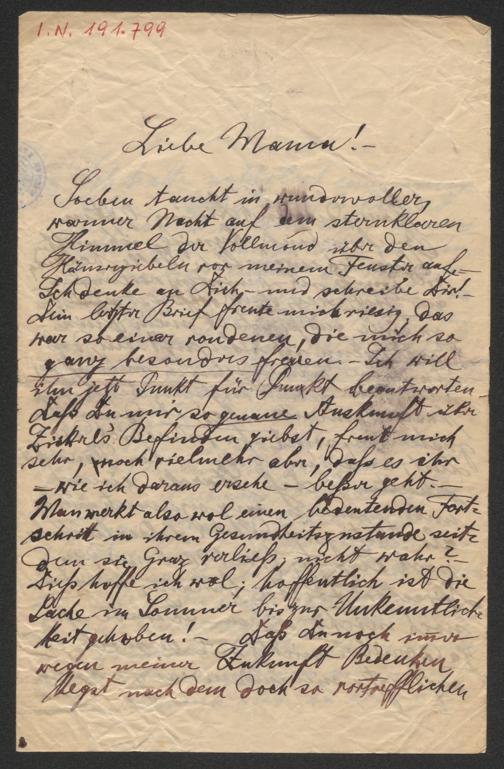 I.N. 191.799
Liebe Mama! –
Soeben taucht in wundervoller,
warmer Nacht auf dem sternklaren
Himmel der Vollmond über den
Häusergiebeln vor meinem Fenster auf –
Ich denke an Dich – und schreibe Dir! –
Dein letzter Brief freute mich riesig, das
war so einer von denen, die mich so
ganz besonders freuen. – Ich will
ihn jetzt Punkt für Punkt beantworten
Daß Du mir so genaue Auskunft über
Befinden giebst, freut mich
sehr, noch vielmehr aber, daß es ihr
– wie ich daraus ersehe – besser geht. –
Man merkt also wol einen bedeutenden Fort=
schritt in ihrem Gesundheitszustande seit=
dem sie Graz verließ, nicht wahr? –
Dieß hoffe ich wol; hoffentlich ist die
Sache im Sommer bis zur Unkenntlich=
keit gehoben! – Daß Du noch immer
wegen meiner Zukunft Bedenken
hegst nach dem doch so vortrefflichen